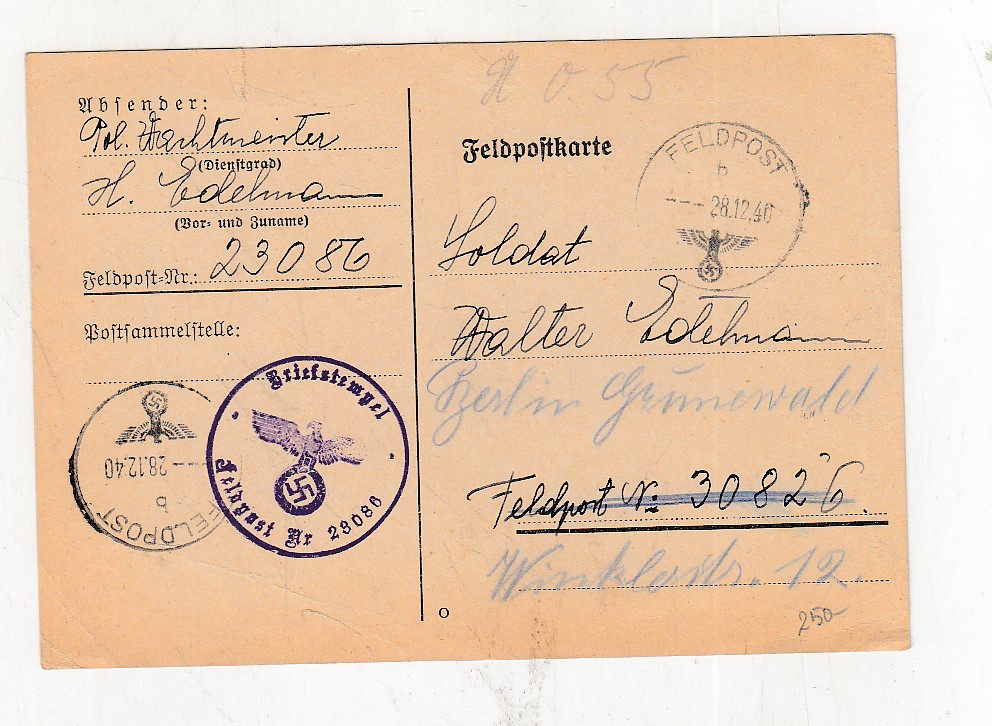 Absender:
Pol. Wachtmeister
(Dienstgrad)
H. Edelmann
(Vor- und Zuname)
Feldpost-Nr.: 23086
Postsammelstelle:
FELDPOST
b
--- 28.12.40
Briefstempel
Feldpost Nr 23086
O 55
Feldpostkarte
FELDPOST
b
--- 28.12.40
Soldat
Walter Edelmann
Berlin Grunewald
Feldpost Nr 30826.
12.
O
250-